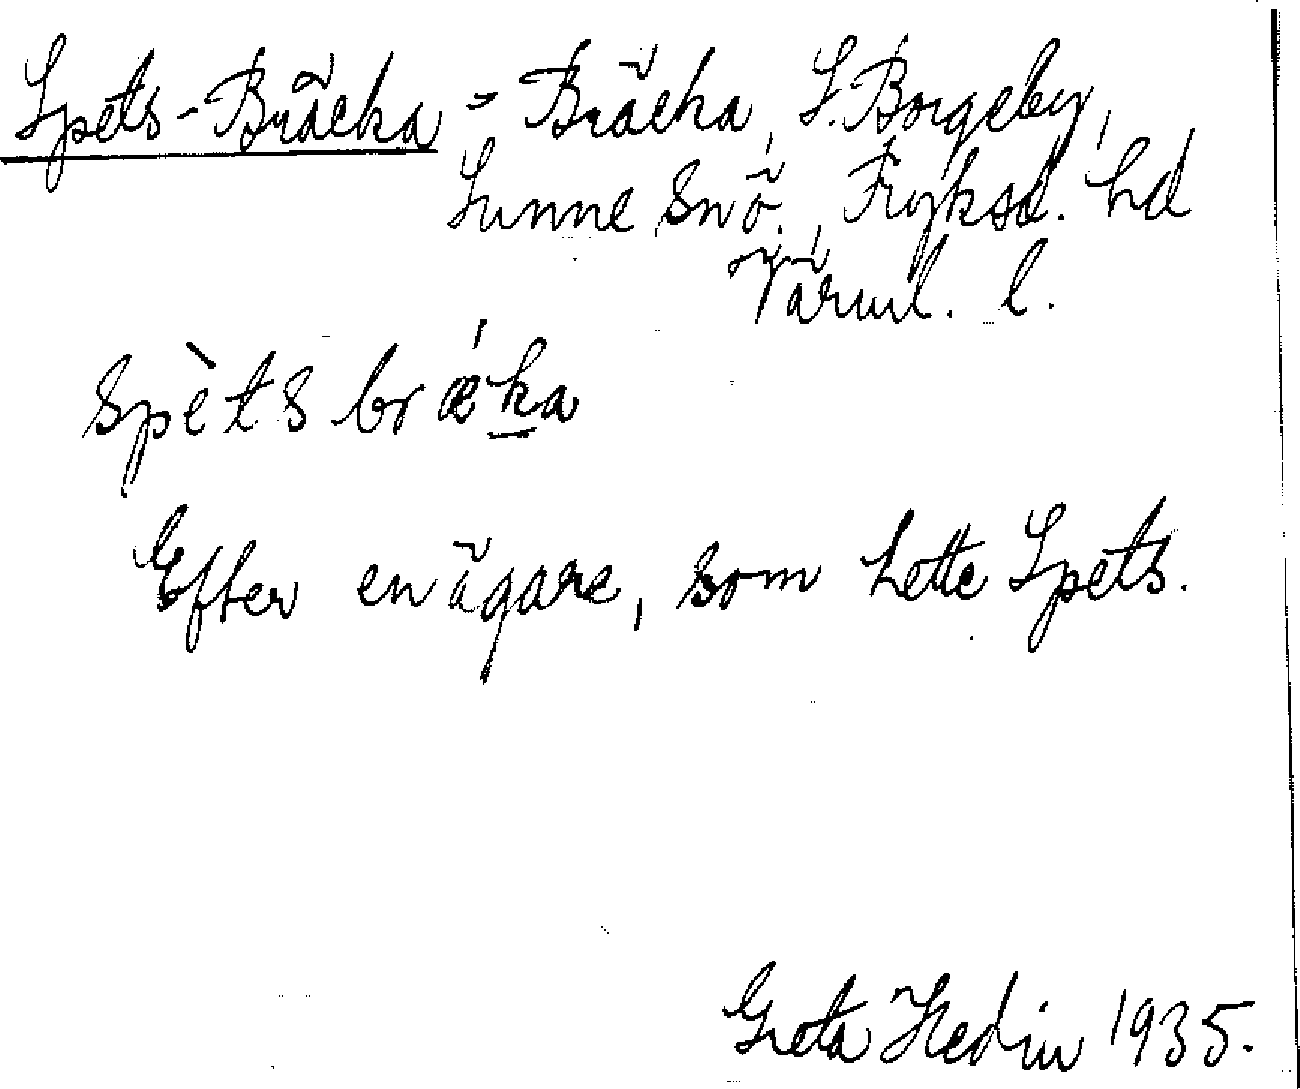 Spets-Bräcka = Bräcka, S. Borgeby,
Sunne sn ö., Fryksd. hd
Värml. l.
spèts brǽka
Efter en ägare, som hette Spets.
Greta Hedin 1935.